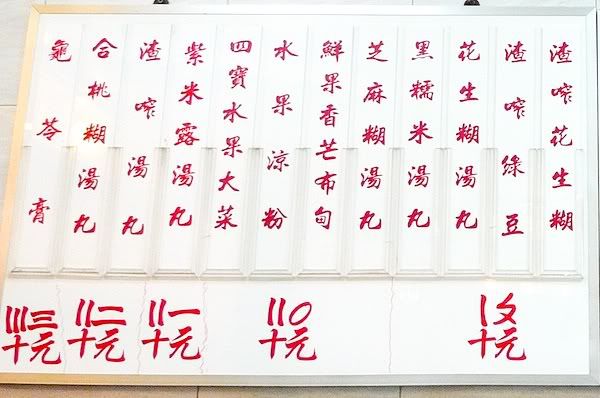 渣咋花生糊
渣咋綠豆
花生糊湯丸
黑糯米湯丸
芝麻糊湯丸
鮮果香芒布甸
水果涼粉
四寶水果大菜
紫米露湯丸
渣咋湯丸
合桃糊湯丸
龜苓膏
〡〩
十元
〢〇
十元
〢一
十元
〢二
十元
〣三
十元